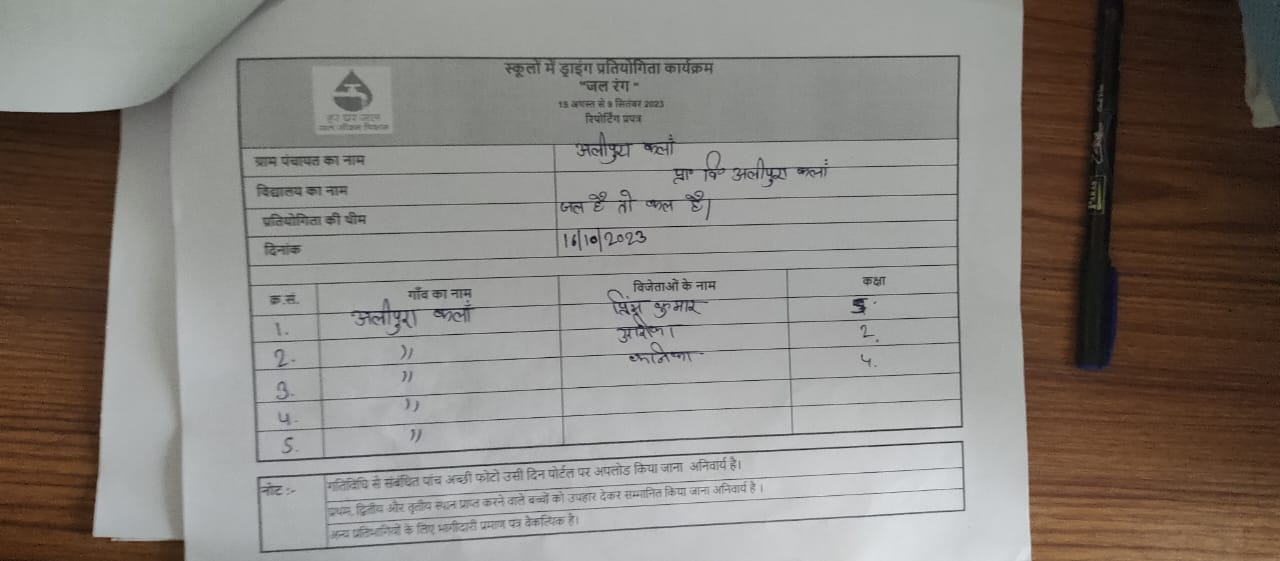 स्कूलों में ड्राइंग प्रतियोगिता कार्यक्रम
"जल रंग"
15 अगस्त से 9 सितंबर 2023
रिपोर्टिंग प्रपत्र
हर घर जल
जल जीवन मिशन
ग्राम पंचायत का नाम अलीपुरा कलाँ
विद्यालय का नाम प्रा० वि० अलीपुरा कलाँ
प्रतियोगिता की थीम जल है तो कल है।
दिनांक 16/10/2023
क्र.सं. गाँव का नाम विजेताओं के नाम कक्षा
1. अलीपुरा कलाँ प्रिंस कुमार
2. )) 2.
3. )) कनिका 4.
4. ))
5. ))
नोट :- गतिविधि से संबंधित पांच अच्छी फोटो उसी दिन पोर्टल पर अपलोड किया जाना अनिवार्य है।
प्रथम, द्वितीय और तृतीय स्थान प्राप्त करने वाले बच्चों को उपहार देकर सम्मानित किया जाना अनिवार्य है ।
अन्य प्रतिभागियों के लिए भागीदारी प्रमाण पत्र वैकल्पिक है।